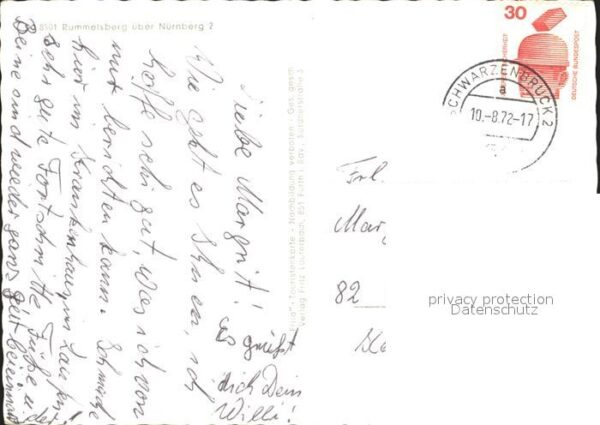 8501 Rummelsberg über Nürnberg 2
Liebe Margrit!
Wie geht es Ihnen, ich
hoffe sehr gut, was ich von
mir berichten kann. Ich mache
hier im Krankenhaus im Laufen
sehr gute Fortschritte, Füße u. der
Beine sind wieder ganz gut beinand!
Es grüßt
dich Dein
Willi!
Touristenkarte - Nachbildung verboten - Ges. gesch.
Verlag Fritz Lauterbach, 851 Fürth / Bay.,
30
DEUTSCHE BUNDESPOST
SCHWARZENBRUCK 2
a
10.-8.72-17
Frl.
Marg
82
privacy protection
Datenschutz